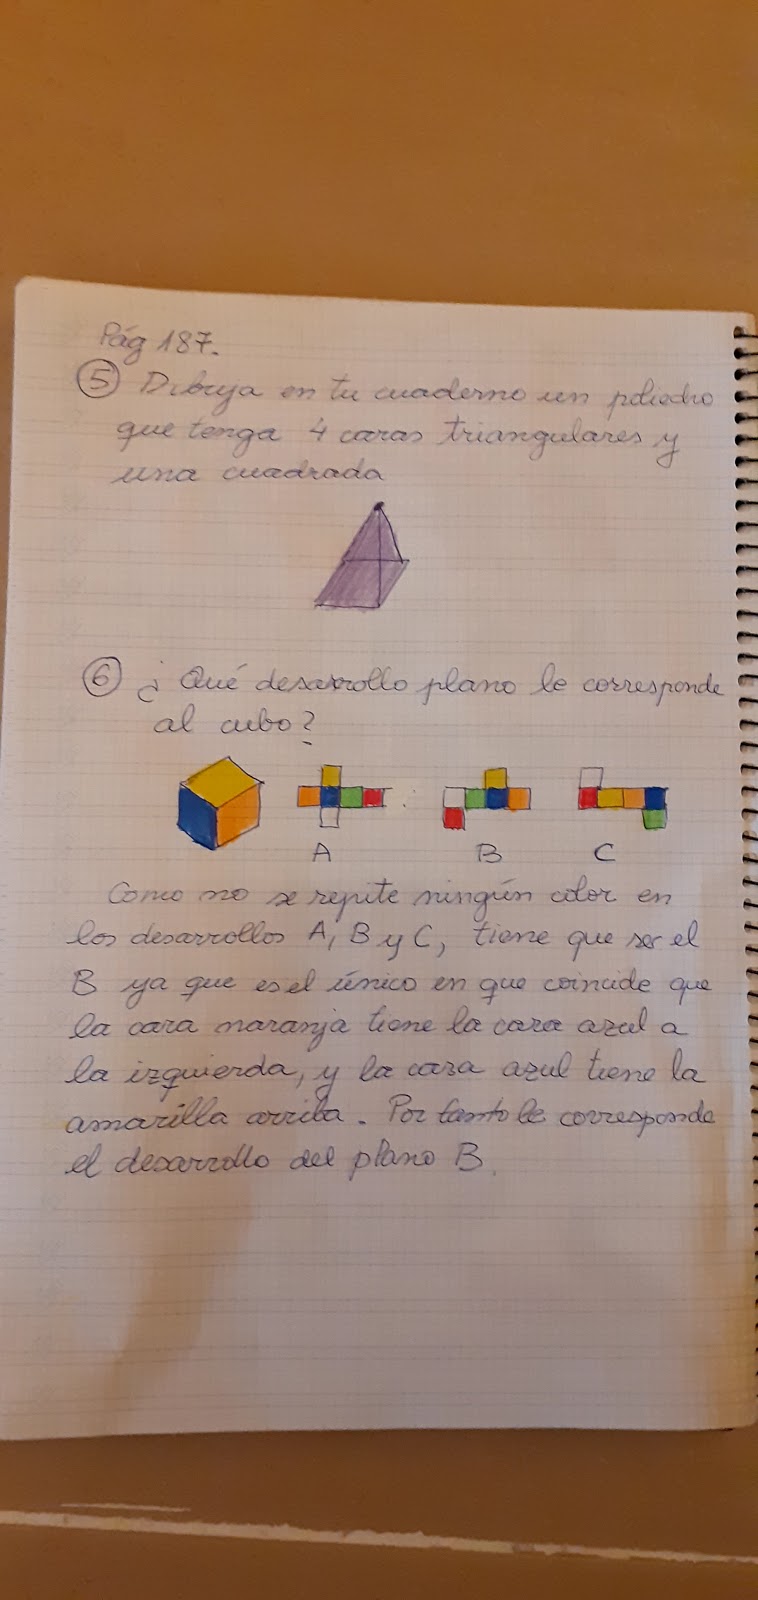 Pág 187.
5 Dibuja en tu cuaderno un poliedro
que tenga 4 caras triangulares y
una cuadrada
6 ¿Qué desarrollo plano le corresponde
al cubo?
A B C
Como no se repite ningún color en
los desarrollos A, B y C, tiene que ser el
B ya que es el único en que coincide que
la cara naranja tiene la cara azul a
la izquierda, y la cara azul tiene la
amarilla arriba. Por tanto le corresponde
el desarrollo del plano B.